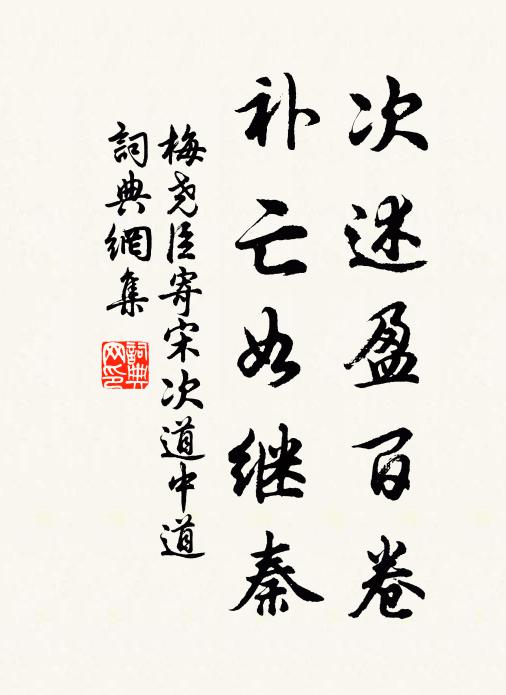 次述盈百卷
补亡如继秦
梅尧臣寄宋次道中道
詞典網集
詞典网印